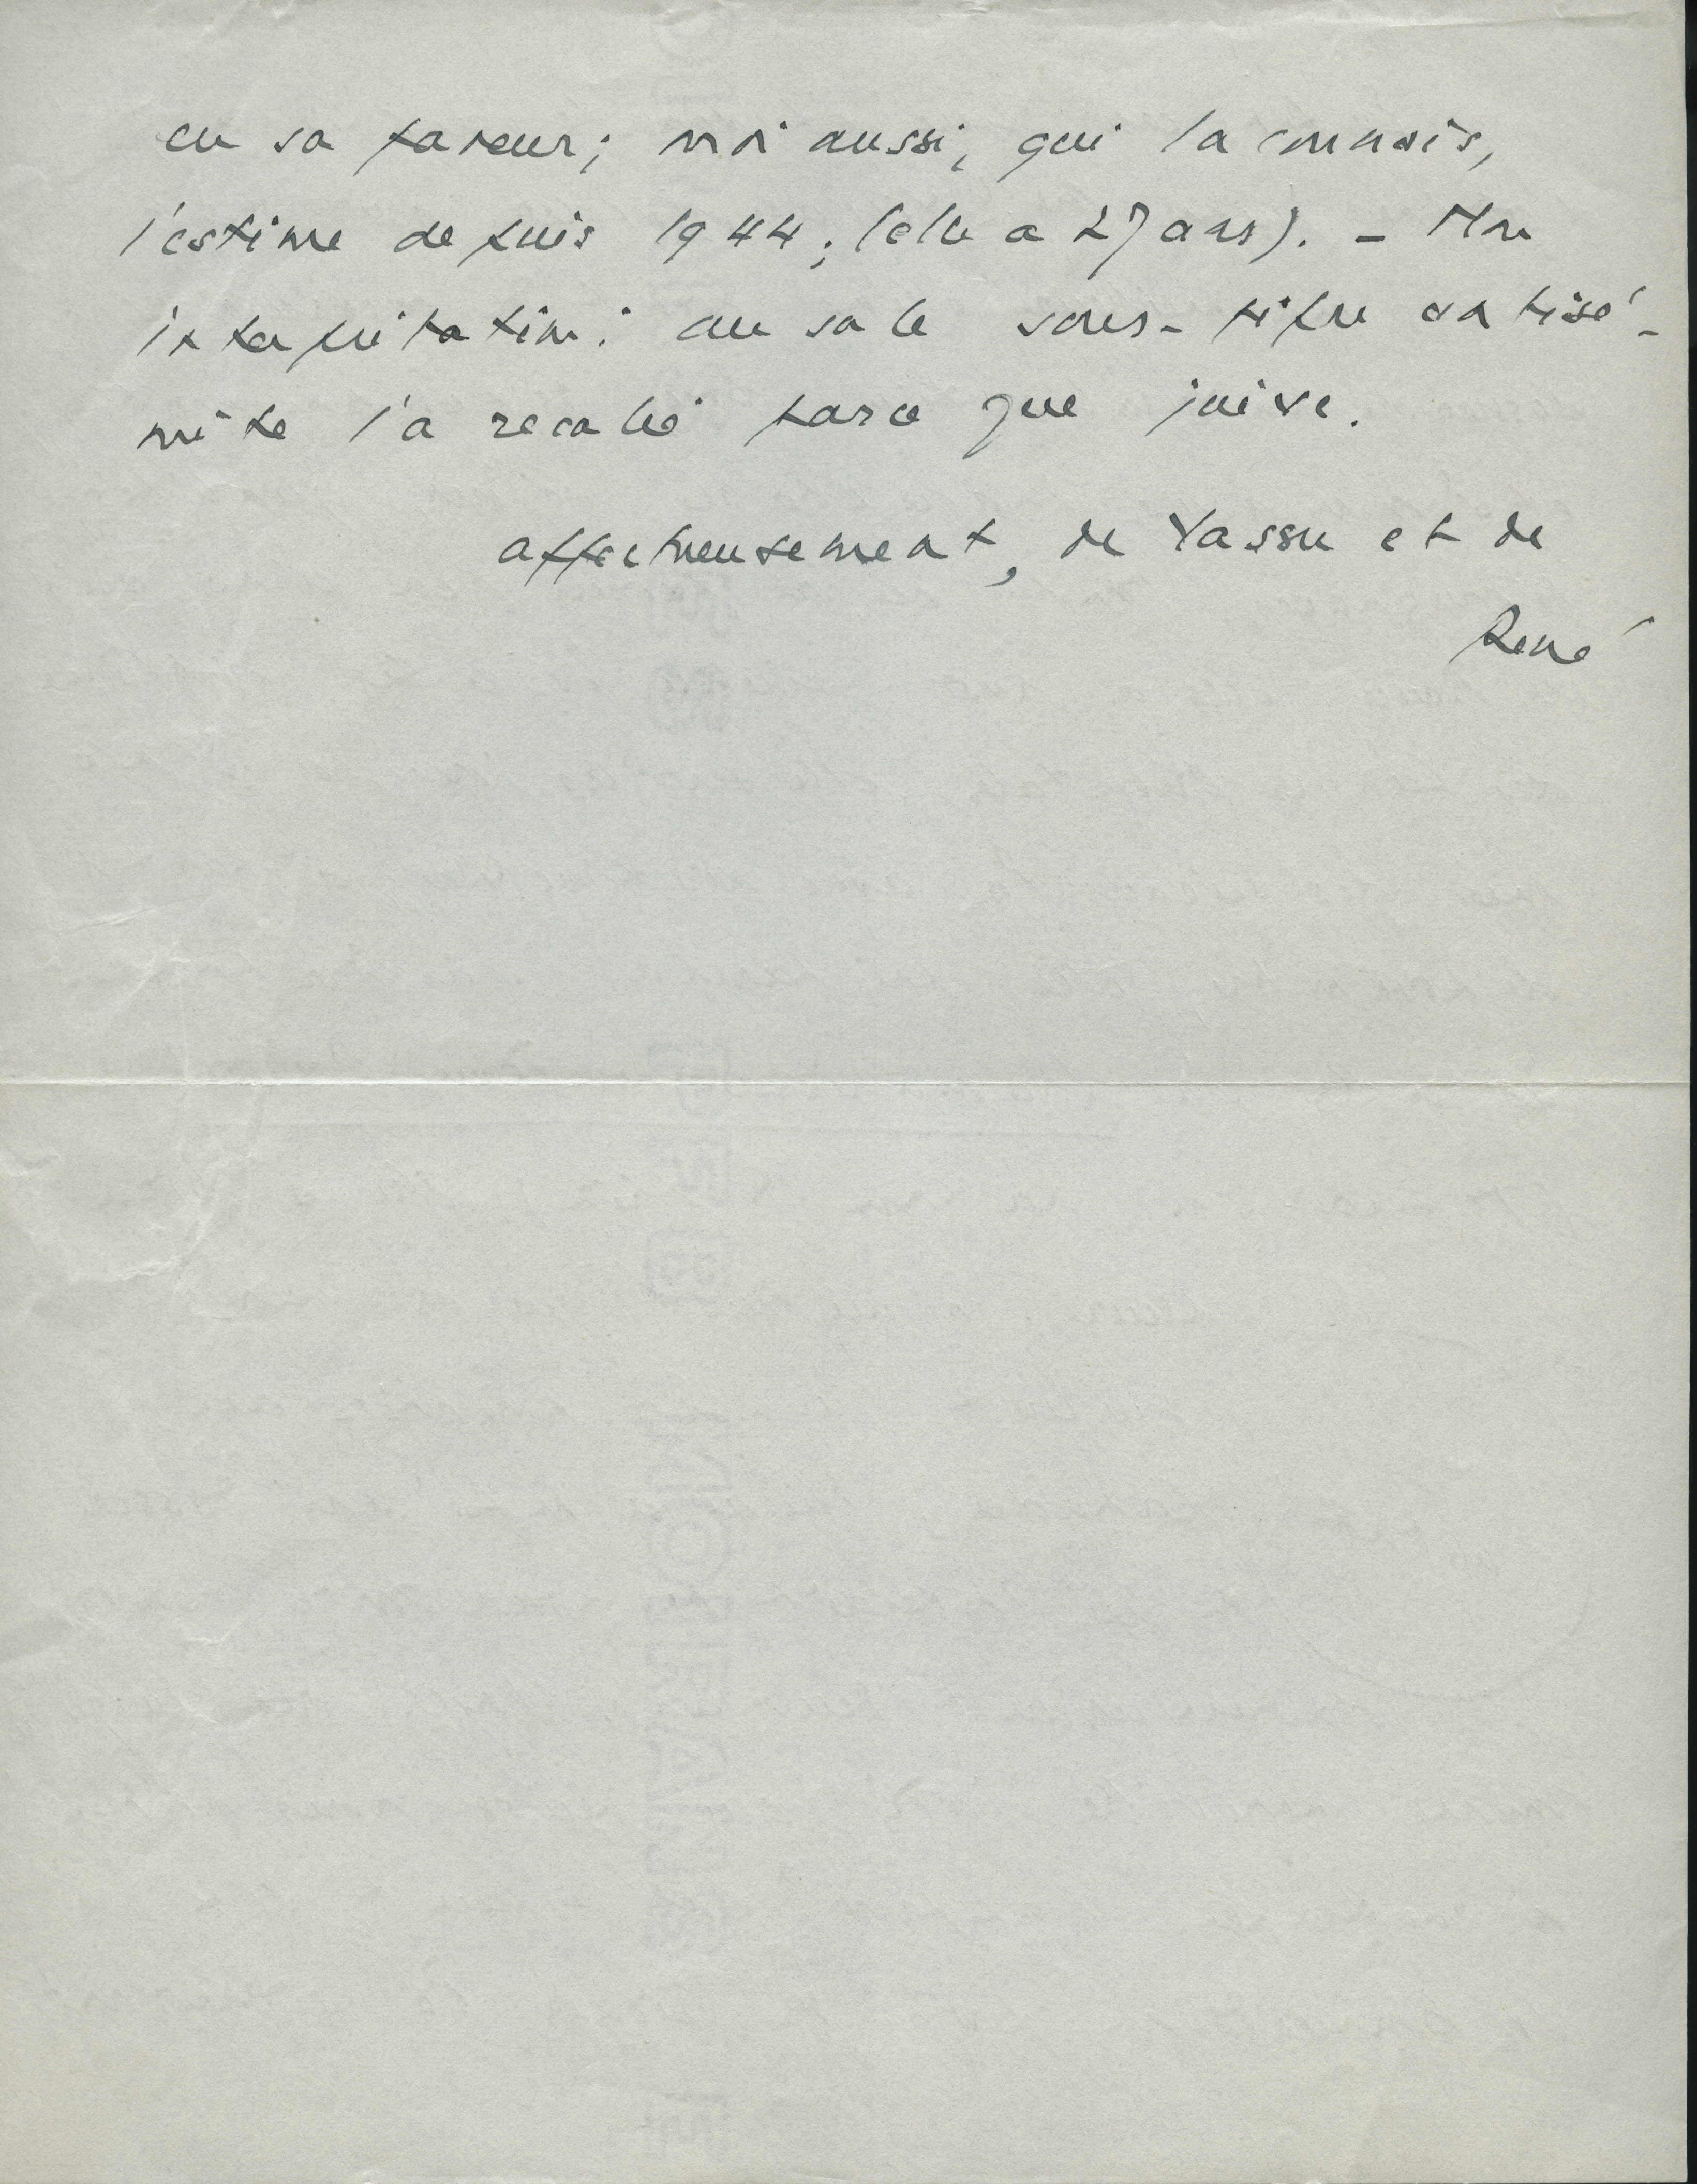 en sa faveur; moi aussi, qui la connais,
l'estime depuis 1944; (elle a 27 ans). - Mon
interprétation: un sale sous-fifre antisé-
mite l'a recalée parce que juive.
affectueusement, de Yassu et de
René